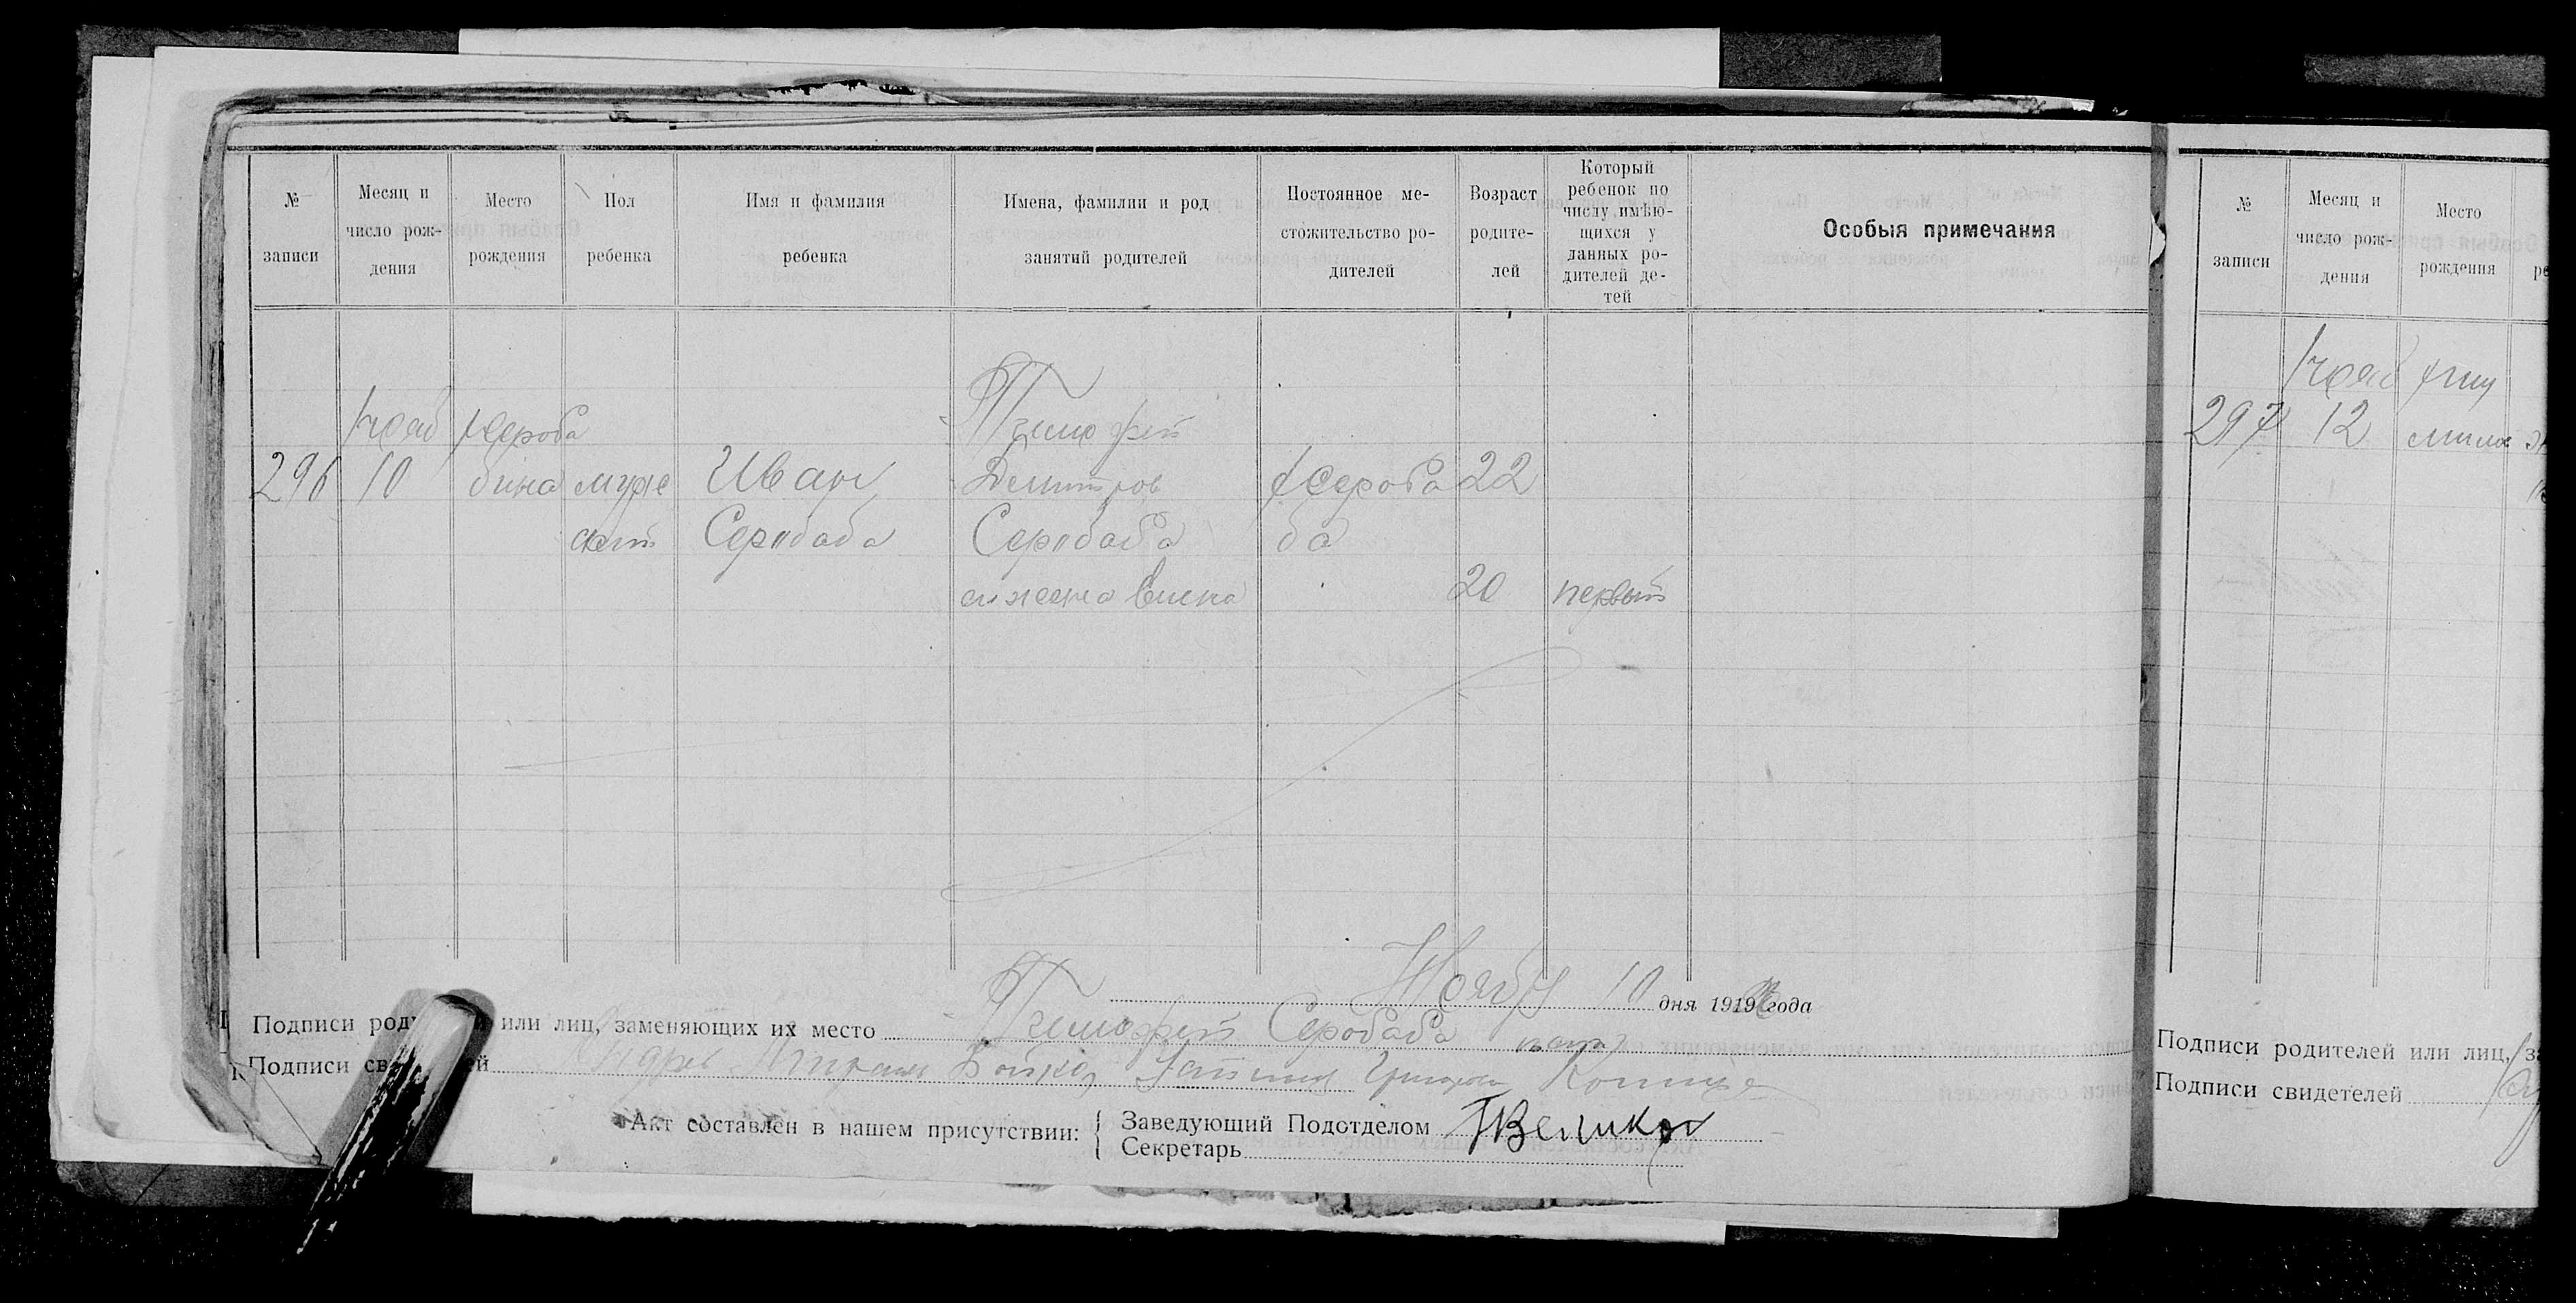 № записи
Месяц и число рождения
Место рождения
Пол ребенка
Имя и фамилия ребенка
Имена, фамилии и род занятий родителей
Постоянное ме-
стожительство ро-
дителей
Возраст
родите-
лей
Который
ребенок по
числу имѣю-
щихся у
данных ро-
дителей де-
тей
Особыя примечания
296
Нояб
10
х Сероба
бина
муже
ский
Иван
Серобаба
Тимофей
Демитров
Серобаба
и жена Елена
х Сероба
ба
22
20
первый
Ноябр 10 дня 1919 года
Подписи или лиц, заменяющих их место Тимофей Серобаба
Подписи Андрей Бойко Григори
Акт составлен в нашем присутствии:
Заведующий Подотделом
Секретарь
№ записи
Месяц и
число рож-
дения
Место
рождения
297
Нояб
12
Подписи родителей или лиц,
Подписи свидетелей